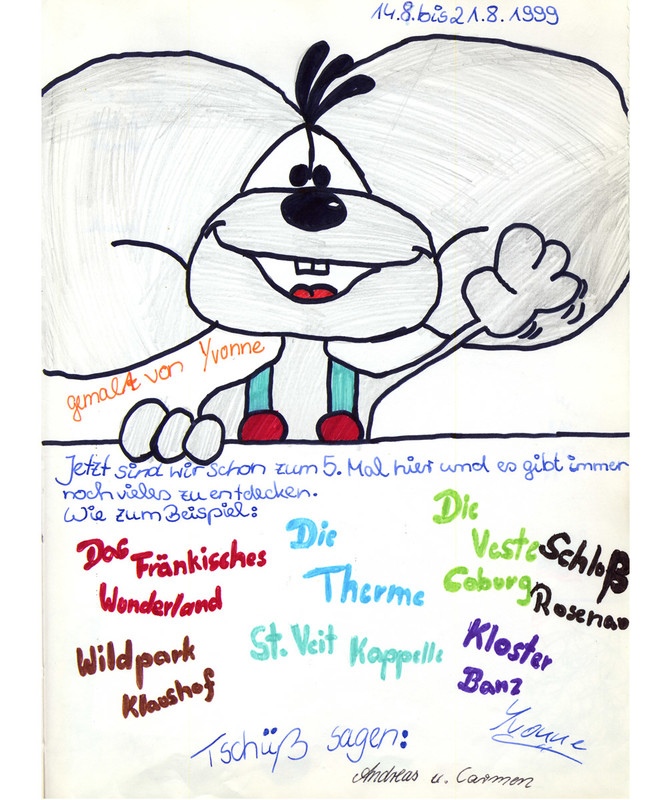 14.8.bis 21.8.1999
gemalt von Yvonne
Jetzt sind wir schon zum 5. Mal hier und es gibt immer
noch vieles zu entdecken.
Wie zum Beispiel:
Das Fränkisches
Wunderland
Die
Therme
Die
Veste
Coburg
Schloß
Rosenau
Wildpark
Klaushof
St. Veit Kappelle
Kloster
Banz
Tschüß sagen:
Yvonne
Andreas u. Carmen